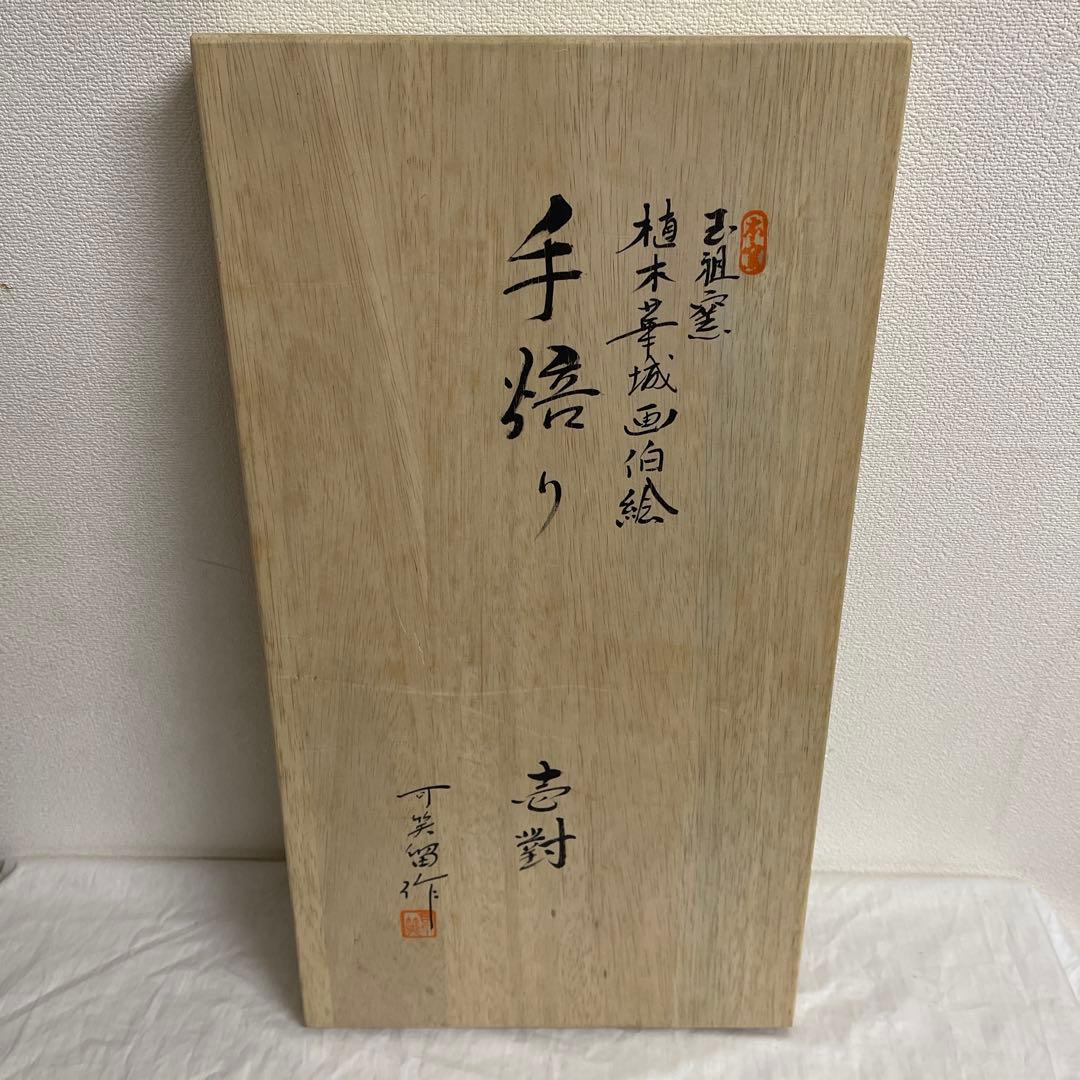 玉祖窯
植木華城画伯絵
手焙り
壱對
可笑留作